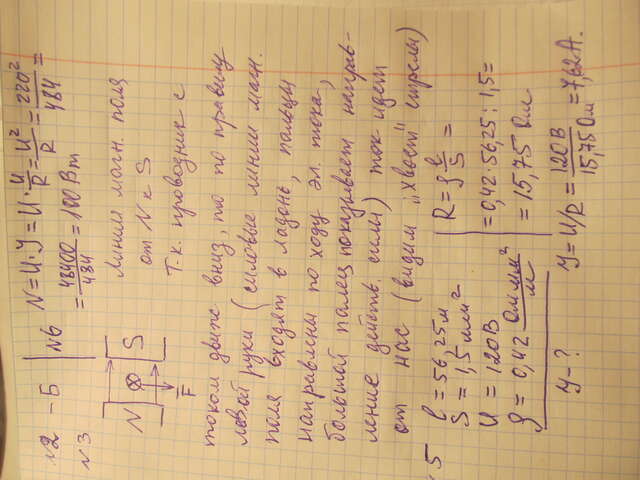 №2 - Б
№6 N = U·У = U · U/R = U²/R = 220²/484 =
= 48400/484 = 100 Вт
№3
N S
F
Линии магн. поля
от N к S
Т.к. проводник с
током движ вниз, то по правилу
левой руки (силовые линии магн.
поля входят в ладонь, пальцы
направлены по ходу эл. тока,
большой палец показывает направ-
ление действ. силы) ток идет
от нас (видим „хвост" стрелы)
5 l = 56,25 м
S = 1,5 мм²
U = 120 В
ρ = 0,42 Ом мм²/м
У - ?
R = ρ l/S =
= 0,42·56,25 : 1,5 =
= 15,75 Ом
У = U/R = 120 В/15,75 Ом = 7,62 А.